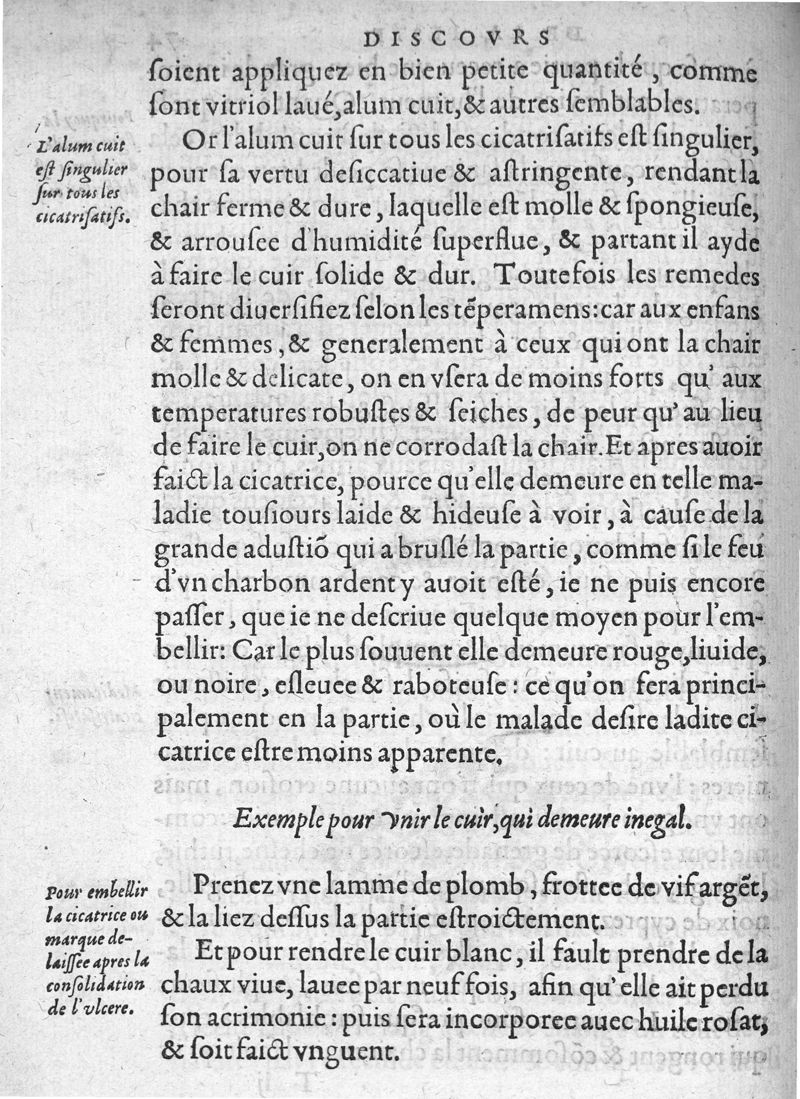 DISCOVRS
ſoient appliquez en bien petite quantité, comme
ſont vitriol laué, alum cuit, & autres ſemblables.
L'alum cuit
eſt ſingulier
ſur tous les
cicatriſatifs.
Or l'alum cuit ſur tous les cicatriſatifs eſt ſingulier,
pour ſa vertu deſiccatiue & aſtringente, rendant la
chair ferme & dure, laquelle eſt molle & ſpongieuſe,
& arrouſee d'humidité ſuperflue, & partant il ayde
à faire le cuir ſolide & dur. Toutefois les remedes
ſeront diuerſifiez ſelon les tẽperamens: car aux enfans
& femmes, & generalement à ceux qui ont la chair
molle & delicate, on en vſera de moins forts qu'aux
temperatures robuſtes & ſeiches, de peur qu'au lieu
de faire le cuir, on ne corrodaſt la chair. Et apres auoir
faict la cicatrice, pource qu'elle demeure en telle ma-
ladie touſiours laide & hideuſe à voir, à cauſe de la
grande aduſtiõ qui a bruſlé la partie, comme ſi le feu
d'vn charbon ardent y auoit eſté, ie ne puis encore
paſſer, que ie ne deſcriue quelque moyen pour l'em-
bellir: Car le plus ſouuent elle demeure rouge, liuide,
ou noire, eſleuee & raboteuſe: ce qu'on fera princi-
palement en la partie, où le malade deſire ladite ci-
catrice eſtre moins apparente.
Exemple pour vnir le cuir, qui demeure inegal.
Pour embellir
la cicatrice ou
marque de-
laiſſee apres la
conſolidation
de l'vlcere.
Prenez vne lamme de plomb, frottee de vif argẽt,
& la liez deſſus la partie eſtroictement.
Et pour rendre le cuir blanc, il fault prendre de la
chaux viue, lauee par neuf fois, afin qu'elle ait perdu
ſon acrimonie: puis ſera incorporee auec huile roſat,
& ſoit faict vnguent.